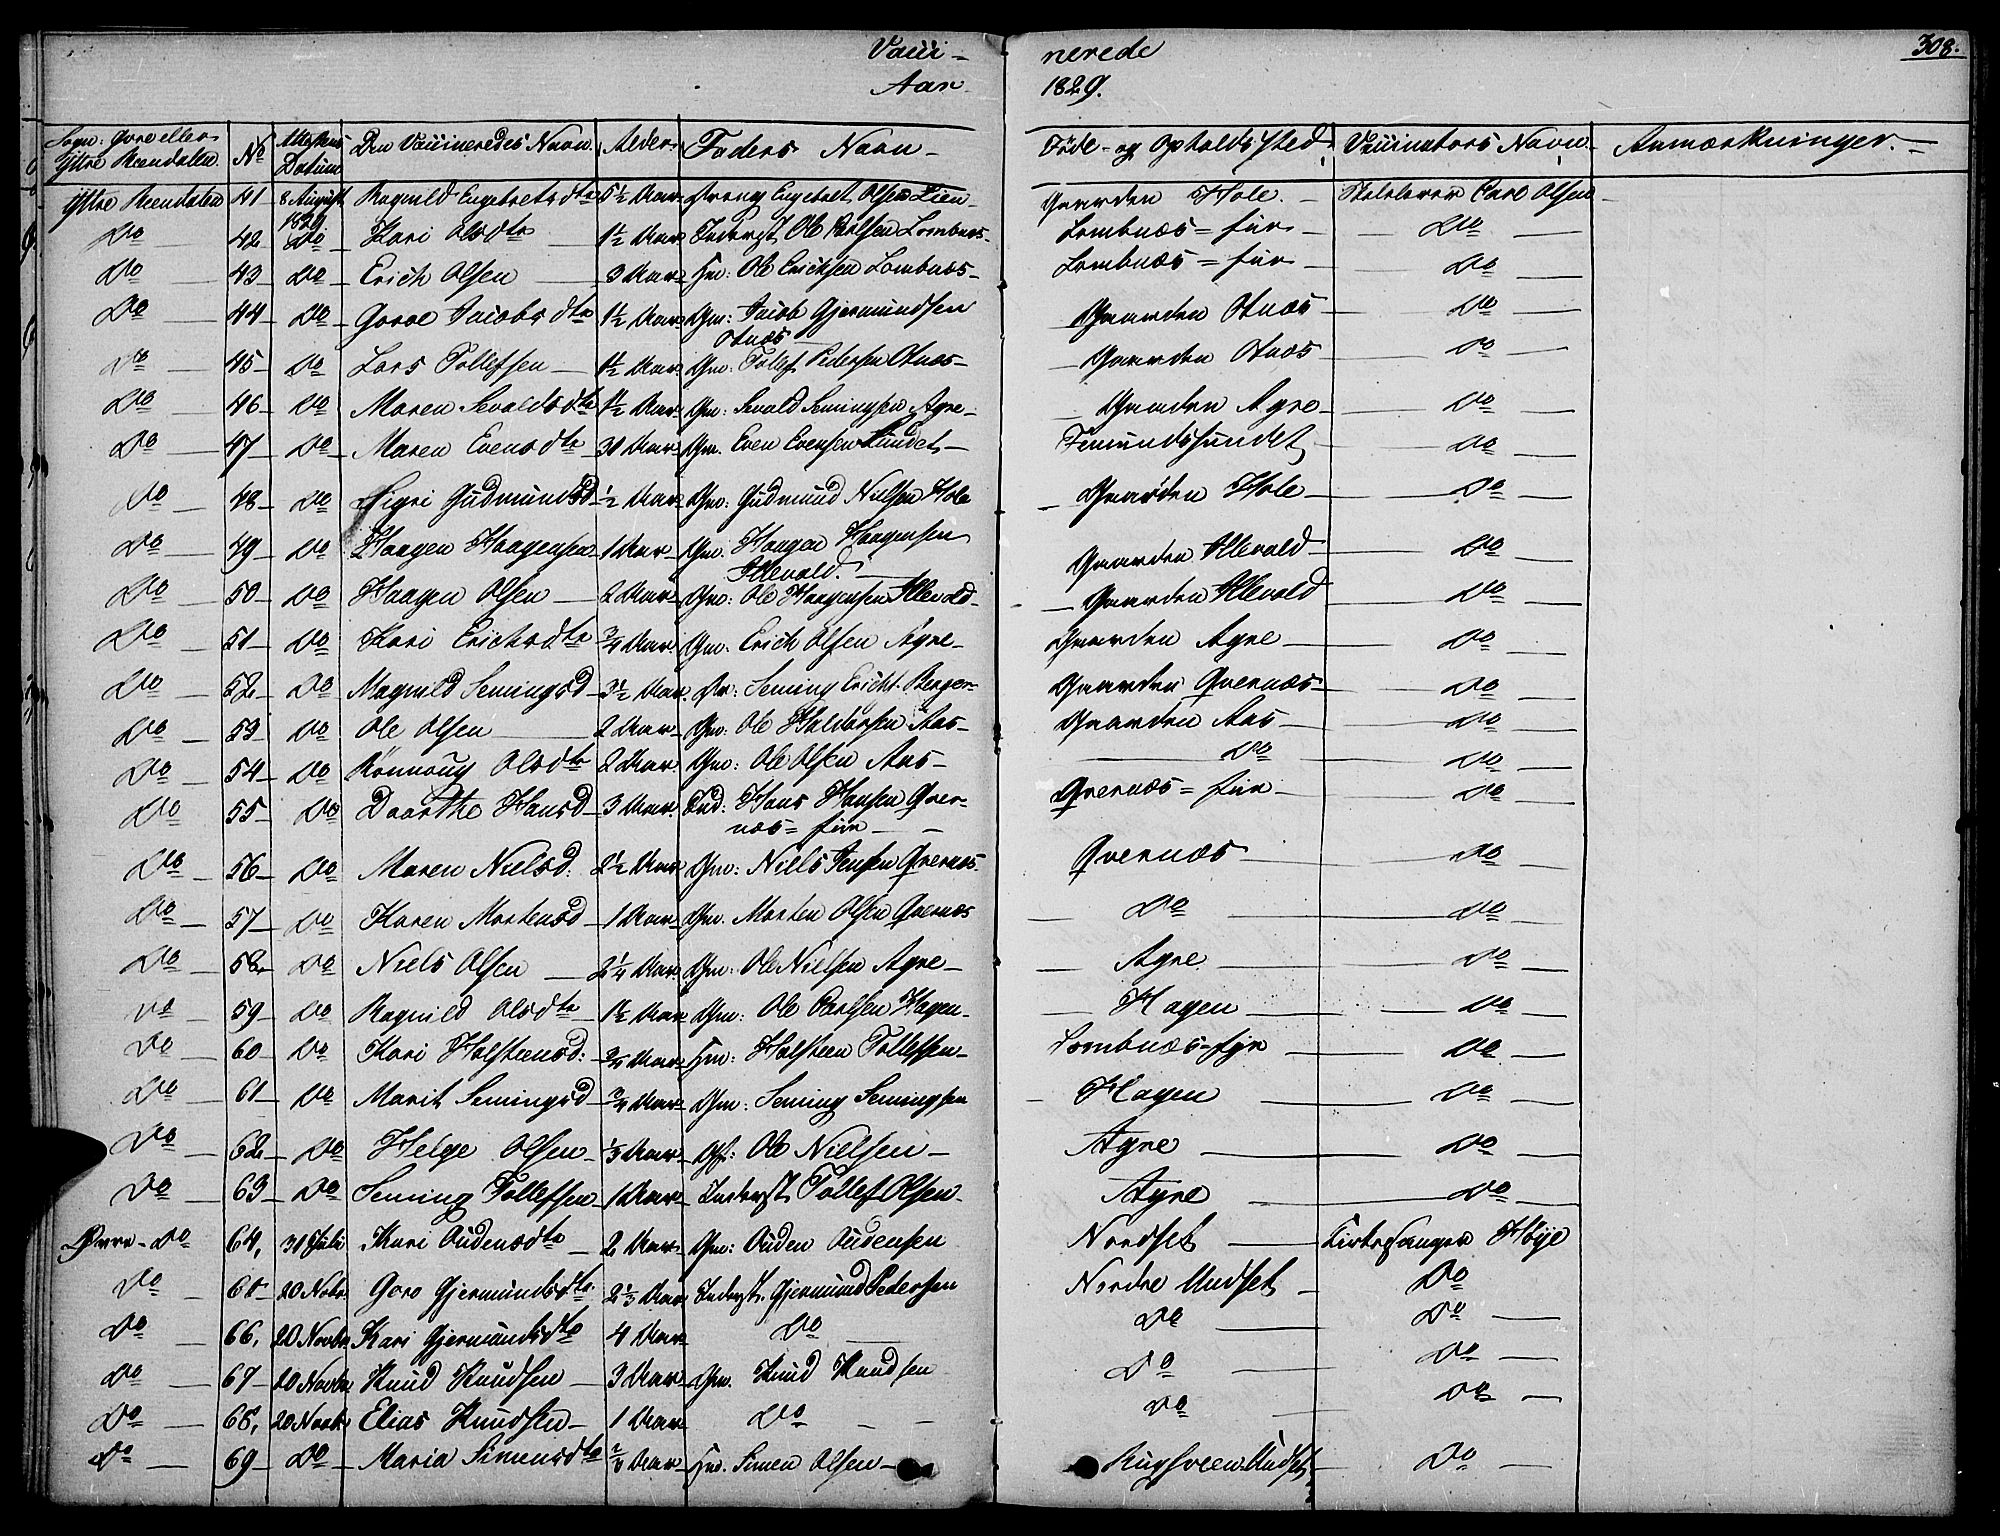 Vacci- nerede 308.
Aar 1829.
Sogn: Øvre eller Ytre Reendalen. No Attestens Datum Den Vaccineredes Navn Alder Faders Navn Føde- og Opholdssted Vaccinators Navn. Anmærkninger.
Ytre Reendalen 41 8 August 1829 Ragnild Engebretsdtr 5½ Aar Dreng Engebret Olsen Lien Gaarden Hole. Skolelærer Carl Olsen
Do 42 Do Kari Olsdtr 1½ Aar Inderst Ole Paalsen Lombnæs Lombnæs=fur Do
Do 43 Do Erich Olsen 3 Aar Hm: Ole Ericksen Lombnæs Lombnæs=fur Do
Do 44 Do Goroe Jacobsdtr 1½ Aar Gm: Jacob Gjermundsen Otnæs Gaarden Otnæs Do
Do 45 Do Lars Tollefsen 1½ Aar Gm: Tollef Pedersen Otnæs Gaarden Otnæs Do
Do 46 Do Maren Sevaldsdtr 1½ Aar Gm: Sevald Semingsen Agre Gaarden Agre Do
Do 47 Do Maren Evensdtr 30 Aar Gm. Even Evensen Sundet Femundssundet Do
Do 48 Do Sigri Gudmundsd ½ Aar Gm: Gudmund Nielsen Hole Gaarden Hole Do
Do 49 Do Haagen Haagensen 1 Aar Gm. Haagen Haagensen Illevold. Gaarden Illevold Do
Do 50 Do Haagen Olsen 2 Aar Gm: Ole Haagensen Illevold Gaarden Illevold Do
Do 51 Do Kari Erichsdtr ¾ Aar Gm: Erich Olsen Agre Gaarden Agre Do
Do 52 Do Magnild Semingsd 3½ Aar Dr: Seming Erichs. Berger Gaarden Qvernæs Do
Do 53 Do Ole Olsen 2 Aar Gm: Ole Haldorsen Aas Gaarden Aas Do
Do 54 Do Rönnoug Olsdtr 2 Aar Gm: Ole Olsen Aas Do Do
Do 55 Do Daarthe Hansd 3 Aar Ind: Hans Hansen Qvernæs=fur Qvernæs=fur Do
Do 56 Do Maren Nielsd: 2½ Aar Gm: Niels Jensen Qvernæs Qvernæs Do
Do 57 Do Karen Mortensd 1 Aar Gm. Morten Olsen Qvernæs Do Do
Do 58 Do Niels Olsen 2¼ Aar Gm: Ole Nielsen Agre Agre Do
Do 59 Do Ragnild Olsdtr 1½ Aar Gm: Ole Paalsen Hagen Hagen Do
Do 60 Do Kari Halsteensd: ¾ Aar Hm: Halsteen Tollefsen Lombnæs-fur Do
Do 61 Do Marit Semingsd ¾ Aar Gm: Seming Semingsen Hagen Do
Do 62 Do Helge Olsen ⅓ Aar Gf: Ole Nielsen Agre Do
Do 63 Do Seming Tollefsen 1 Aar Inderst Tollef Olsen Agre Do
Øvre-Do 64, 31 Juli Kari Oudensdtr 2 Aar Gm: Ouden Oudensen Nordset Kirkesanger Höye
Do 65 20 Nobr. Goro Gjermundsdtr. 2⅓ Aar Inderst. Gjermund Pedersen Nordre Undset Do
Do 66, 20 Novbr Kari Gjermundsdtr 4 Aar Do Do Do
Do 67 20 Novbr Knud Knudsen 3 Aar Gm. Knud Knudsen Do Do
Do 68, 20 Novbr Elias Knudsen 1 Aar Do Do Do
Do 69 Do Maria Simensdtr ⅔ Aar Hm. Simen Olsen Rugsveen Undset Do